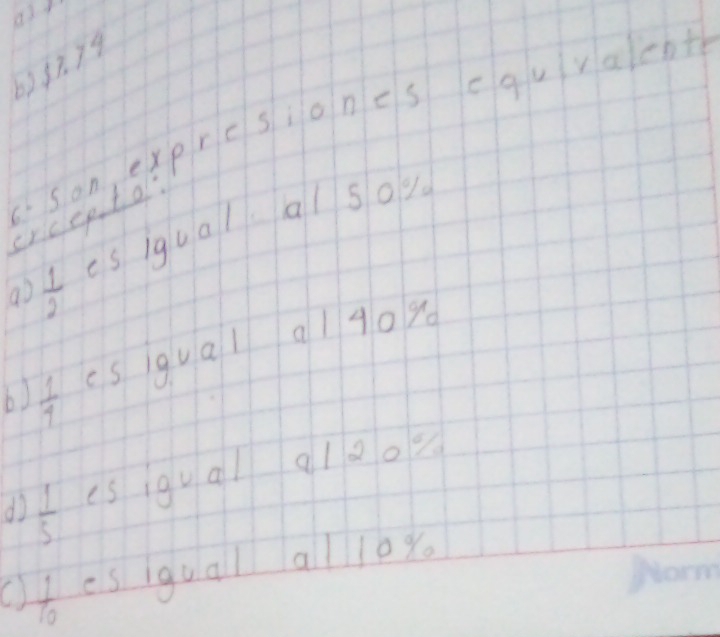 b) $7.74
6- son expresiones equivalent
excepto:
a) 1/2 es igual al 50%
b) 1/4 es igual al 40%
d) 1/5 es igual al 20%
c) 1/10 es igual al 10%
Norm